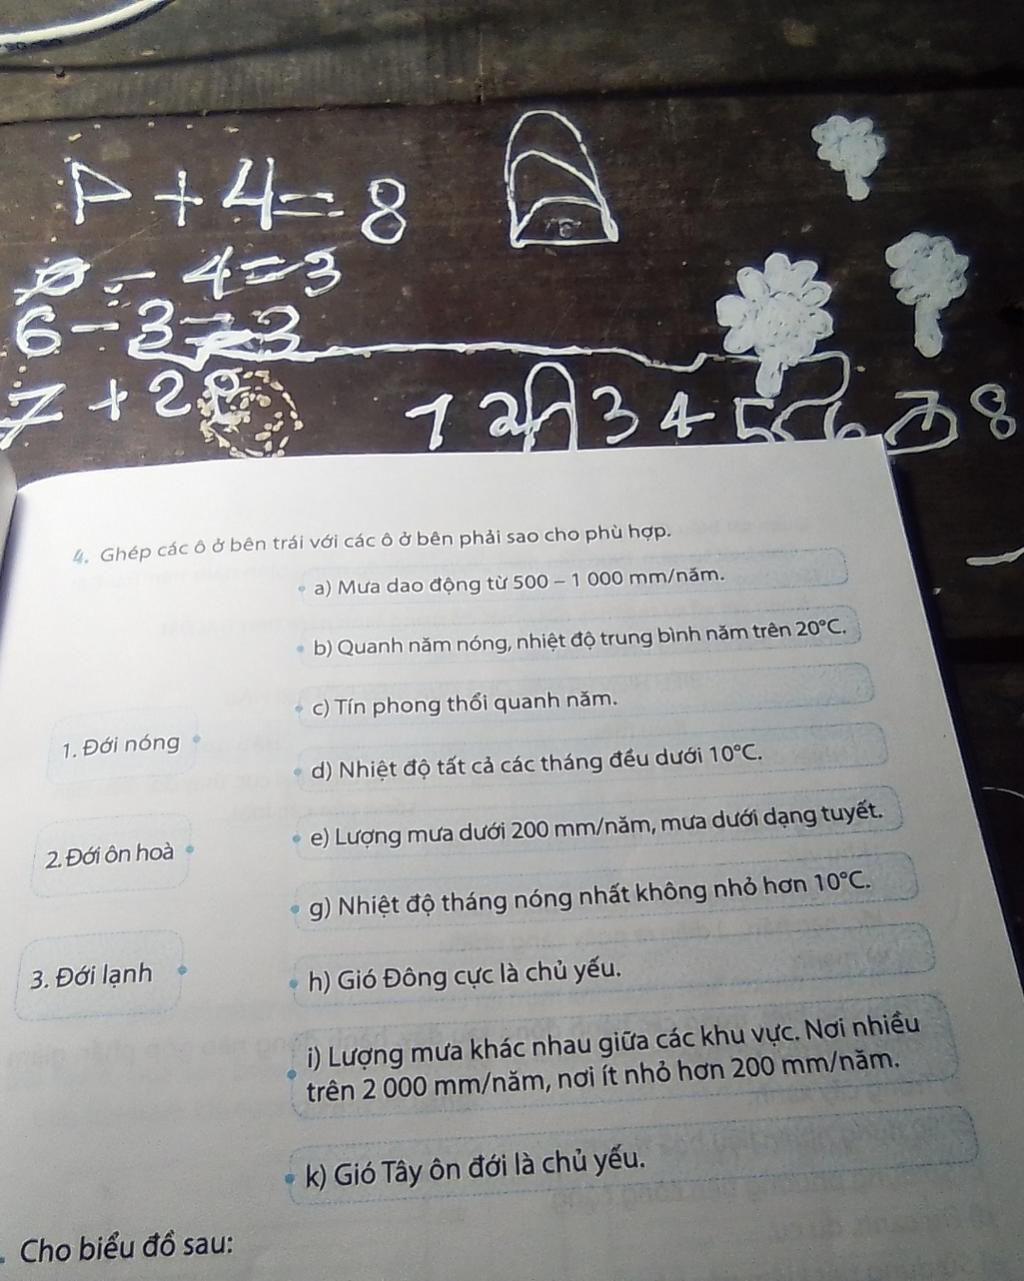 P + 4 = 8
- 4 = 3
6 - 3 = 3
7 + 2
1 2 3 4 5 6 7 8
4. Ghép các ô ở bên trái với các ô ở bên phải sao cho phù hợp.
a) Mưa dao động từ 500 – 1 000 mm/năm.
b) Quanh năm nóng, nhiệt độ trung bình năm trên 20°C.
c) Tín phong thổi quanh năm.
1. Đới nóng
d) Nhiệt độ tất cả các tháng đều dưới 10°C.
e) Lượng mưa dưới 200 mm/năm, mưa dưới dạng tuyết.
2. Đới ôn hoà
g) Nhiệt độ tháng nóng nhất không nhỏ hơn 10°C.
3. Đới lạnh
h) Gió Đông cực là chủ yếu.
i) Lượng mưa khác nhau giữa các khu vực. Nơi nhiều
trên 2 000 mm/năm, nơi ít nhỏ hơn 200 mm/năm.
k) Gió Tây ôn đới là chủ yếu.
. Cho biểu đồ sau: